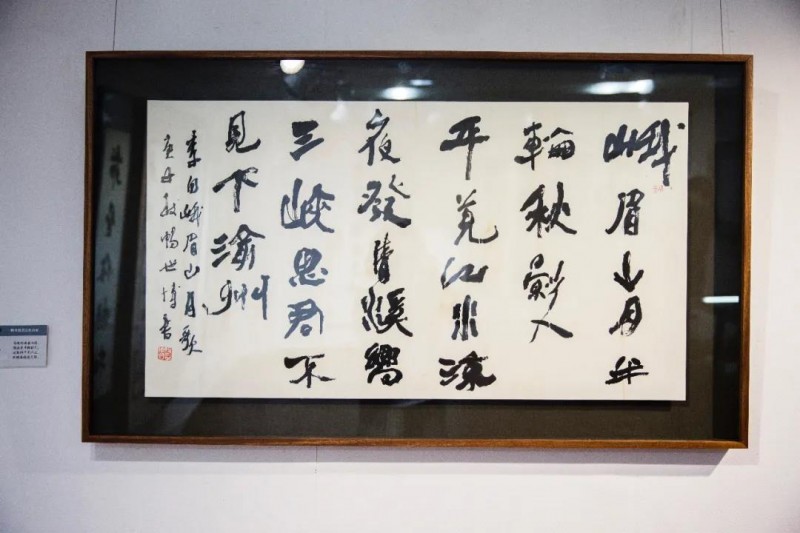 峨眉山月半
輪秋影入
平羌江水流
夜發清溪嚮
三峽思君不
見下渝州
李白峨眉山月歌
世博書